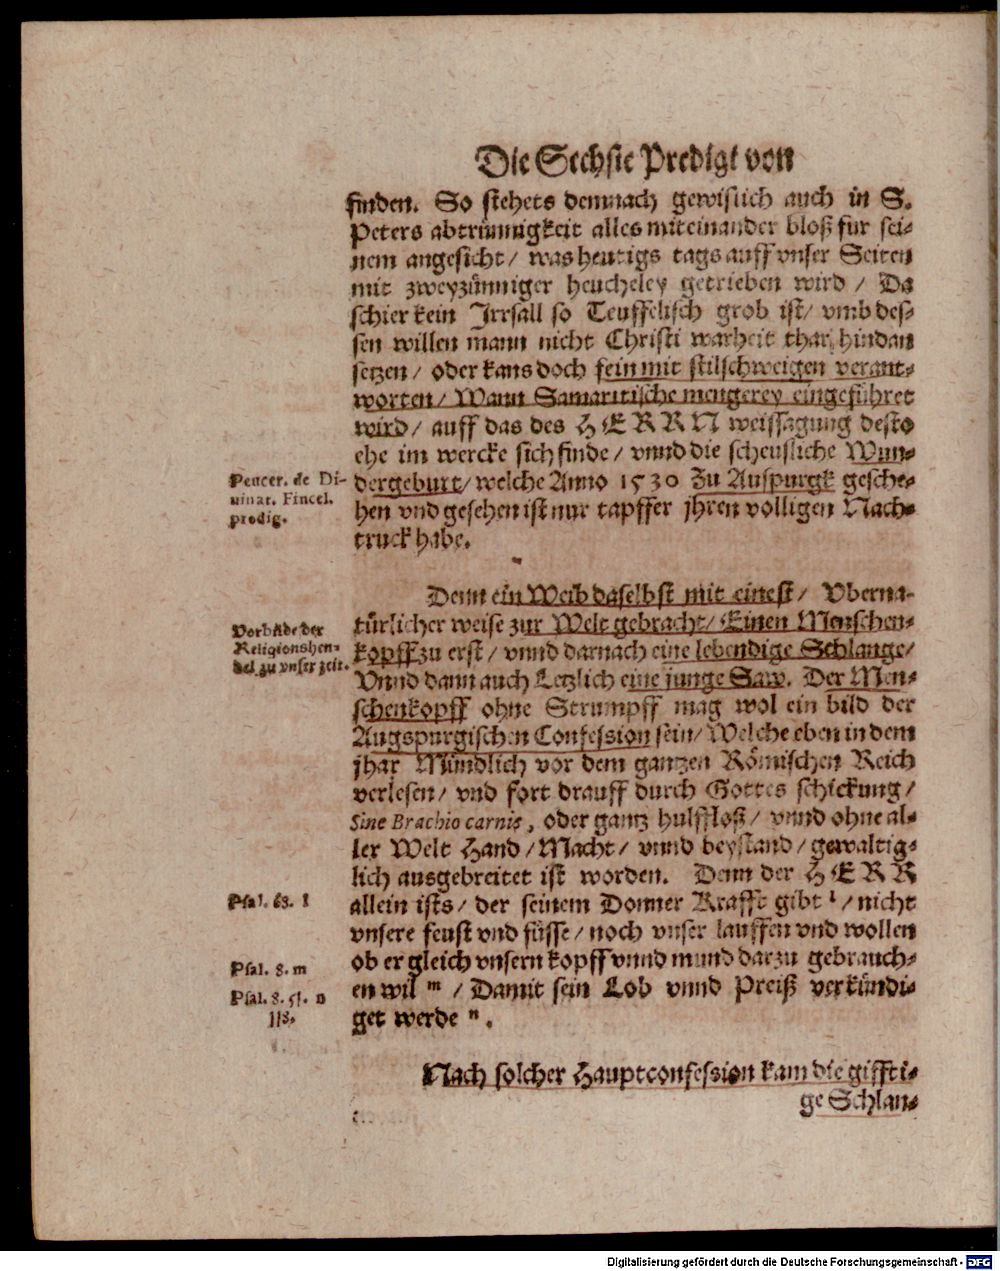 Die Sechste Predigt von
finden. So stehets demnach gewislich auch in S.
Peters abtrünnigkeit alles miteinander bloß fur sei⸗
nem angesicht / was heutigs tags auff vnser Seiten
mit zweyzünniger heucheley getrieben wird / Da
schier kein Irrsall so Teuffelisch grob ist / vmb des⸗
sen willen mann nicht Christi warheit thar hindan
setzen / oder kans doch fein mit stilschweigen verant⸗
worten / Wann Samaritische mengerey eingeführet
wird / auff das des HERRN weissagung desto
ehe im wercke sich finde / vnnd die scheusliche Wun⸗
Peucer. de Di-
uinat. Fincel.
prodig.
dergeburt / welche Anno 1530 Zu Auspurgk gesche⸗
hen vnd gesehen ist nur tapffer jhren volligen Nach⸗
truck habe.
Denn ein Weib daselbst mit einest / Vberna⸗
Vorbilde der
Religionshen⸗
del zu vnser zeit.
türlicher weise zur Welt gebracht / Einen Menschen⸗
kopff zu erst / vnnd darnach eine lebendige Schlange /
Vnnd dann auch Letzlich eine junge Saw. Der Men⸗
schenkopff ohne Strumpff mag wol ein bild der
Augspurgischen Confession sein / Welche eben in dem
jhar Mündlich vor dem gantzen Römischen Reich
verlesen / vnd fort drauff durch Gottes schickung /
Sine Brachio carnis, oder gantz hulffloß / vnnd ohne al⸗
ler Welt Hand / Macht / vnnd beystand / gewaltig⸗
lich ausgebreitet ist worden. Denn der HERR
Psal. 63. l
allein ists / der seinem Donner Krafft gibt l / nicht
vnsere feust vnd füsse / noch vnser lauffen vnd wollen
Psal. 8. m
ob er gleich vnsern kopff vnnd mund darzu gebrauch⸗
Psal. 8. 51. n
118.
en wil m / Damit sein Lob vnnd Preiß verkündi⸗
get werde n.
Nach solcher Hauptconfession kam die giffti⸗
ge Schlan⸗
Digitalisierung gefördert durch die Deutsche Forschungsgemeinschaft - DFG